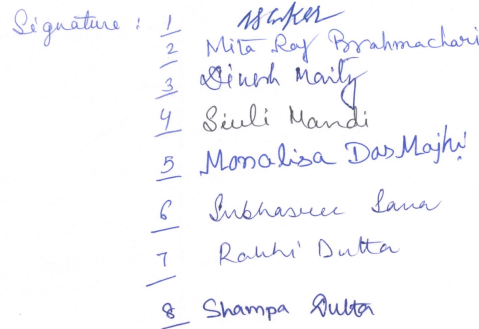 Signature: 1
2 Mita Roy Brahmachari
3 Dinesh Maity
4 Siuli Mandi
5 Monalisa Das Majhi
6 Subhasree Jana
7 Rakhi Dutta
8 Shampa Dutta